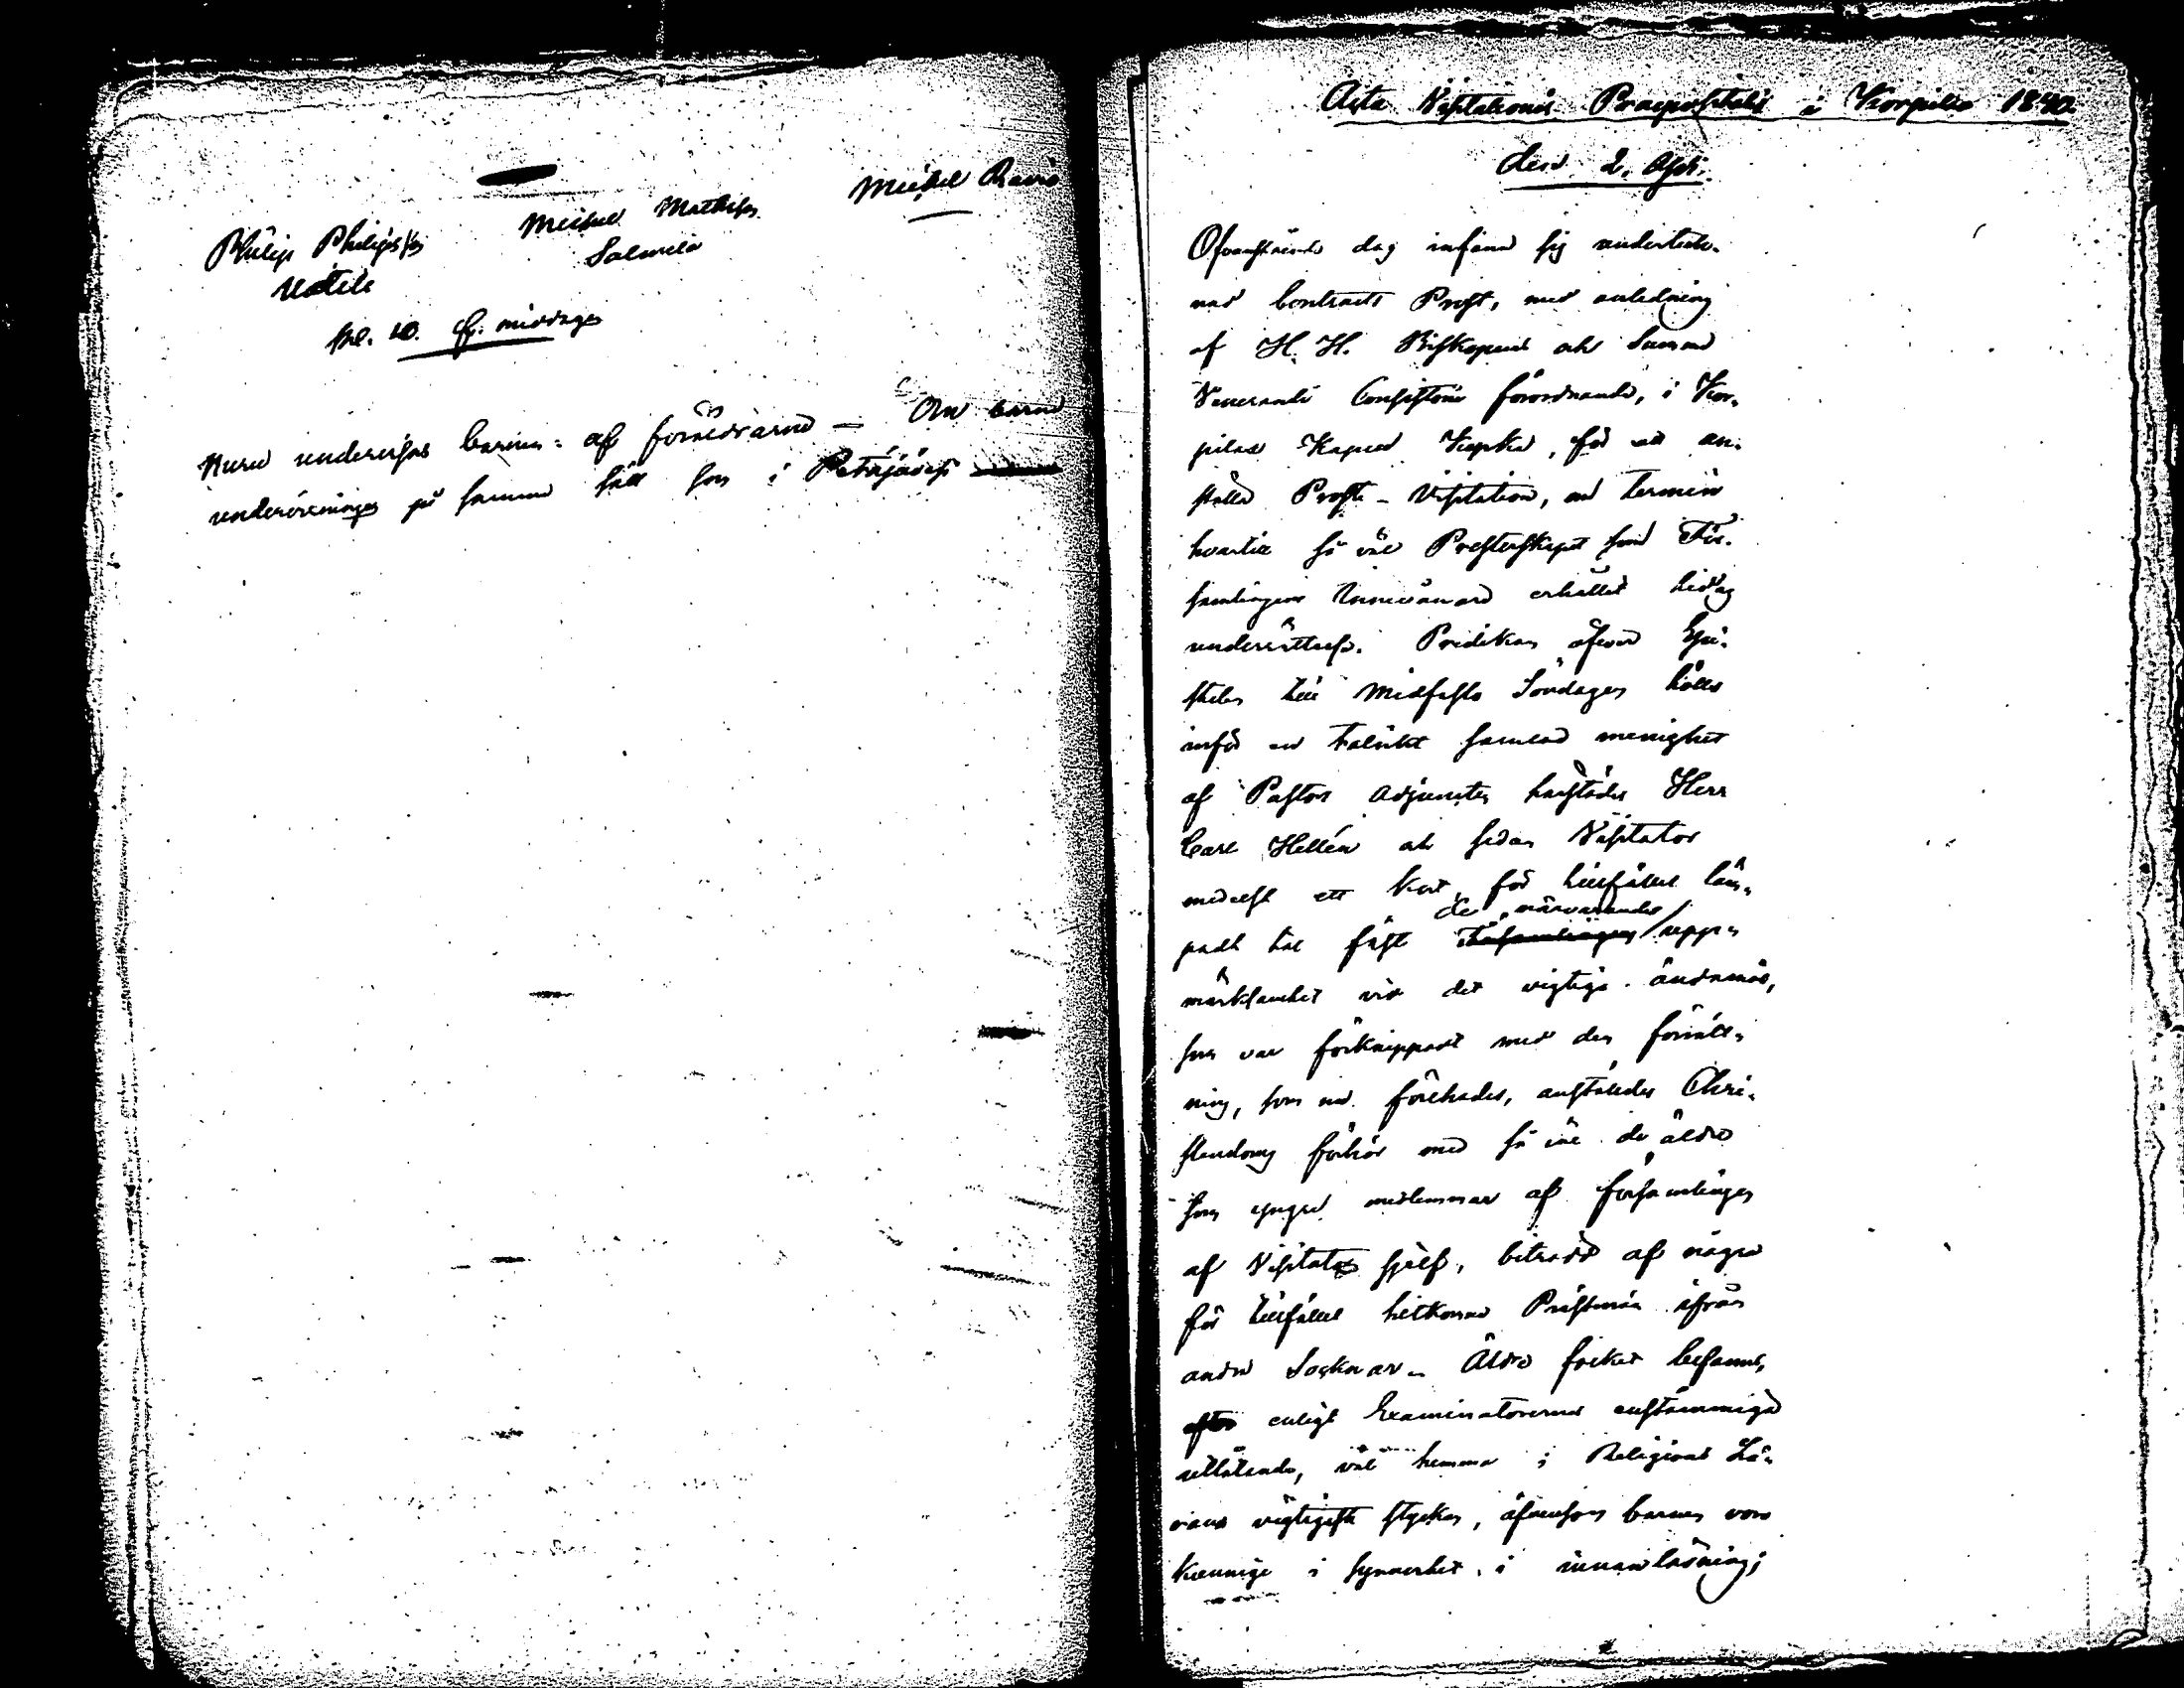 Philip Philipsson
Uotila
Michel Mathsson
Salmela
Michel Ravio
kl. 10. f. middagen
Huru undervisas barnen: af föräldrarne — Om barne
undervisningen på samma sätt som i Petäjävesi
Acta Visitationis Praepositalis i Korpilax 1840
den 2. Apr.
Ofvanstående dag infann sig underteck-
nad Contracts Prost, med anledning
af H. H. Biskopens och Summe
Venerandi Consistorii förordnande, i Kor-
pilax Kapell Kyrka, för att an-
ställa Prosts-Visitation, om termin
hvartill så väl Presterskapet som För-
samlingens Innevånare erhållit tidig
underrättelse. Predikan öfver Epi-
steln till Midfasto Söndagen hölls
inför en talrikt samlad menighet
af Pastors Adjuncten härstädes Herr
Carl Hellén och sedan Visitator
medelst ett kort, för tillfället läm-
padt tal fäst de närvarandes
Församlingens upp-
märksamhet vid det vigtiga ändamål,
som var förknippadt med den förrätt-
ning, som nu förehades, anställdes Chri-
stendoms förhör med så väl de äldre
som yngre medlemmar af församlingen
af Visitator sjelf, biträdd af några
för tillfället hitkomna Prestmän ifrån
andra Socknar. Äldre folket befanns,
efter enligt Examinatorernes enstämmiga
utlåtande, väl hemma i Religions Lä-
rans vigtigaste stycken, äfvensom barnen voro
kunnige i synnerhet i innanläsning;